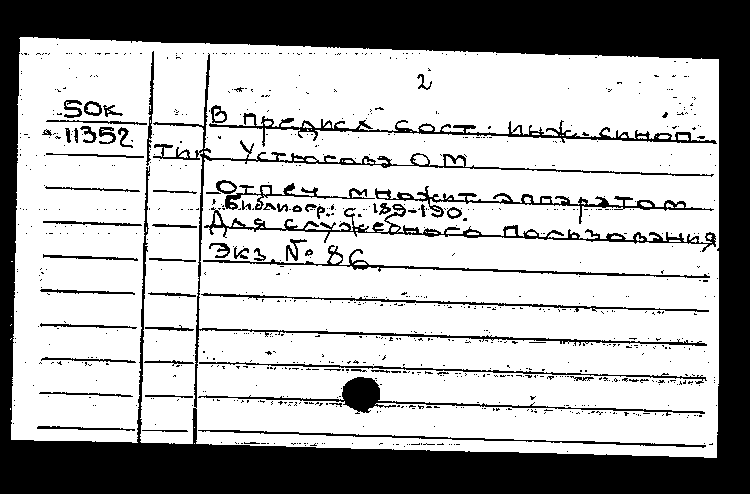 2
SOK
11352
В предисл сост.: инж.-синоп-
тик О.М.
Отпеч. множит. аппаратом
Библиогр.: с. 189-190.
Для служебного пользования
Экз. № 86.